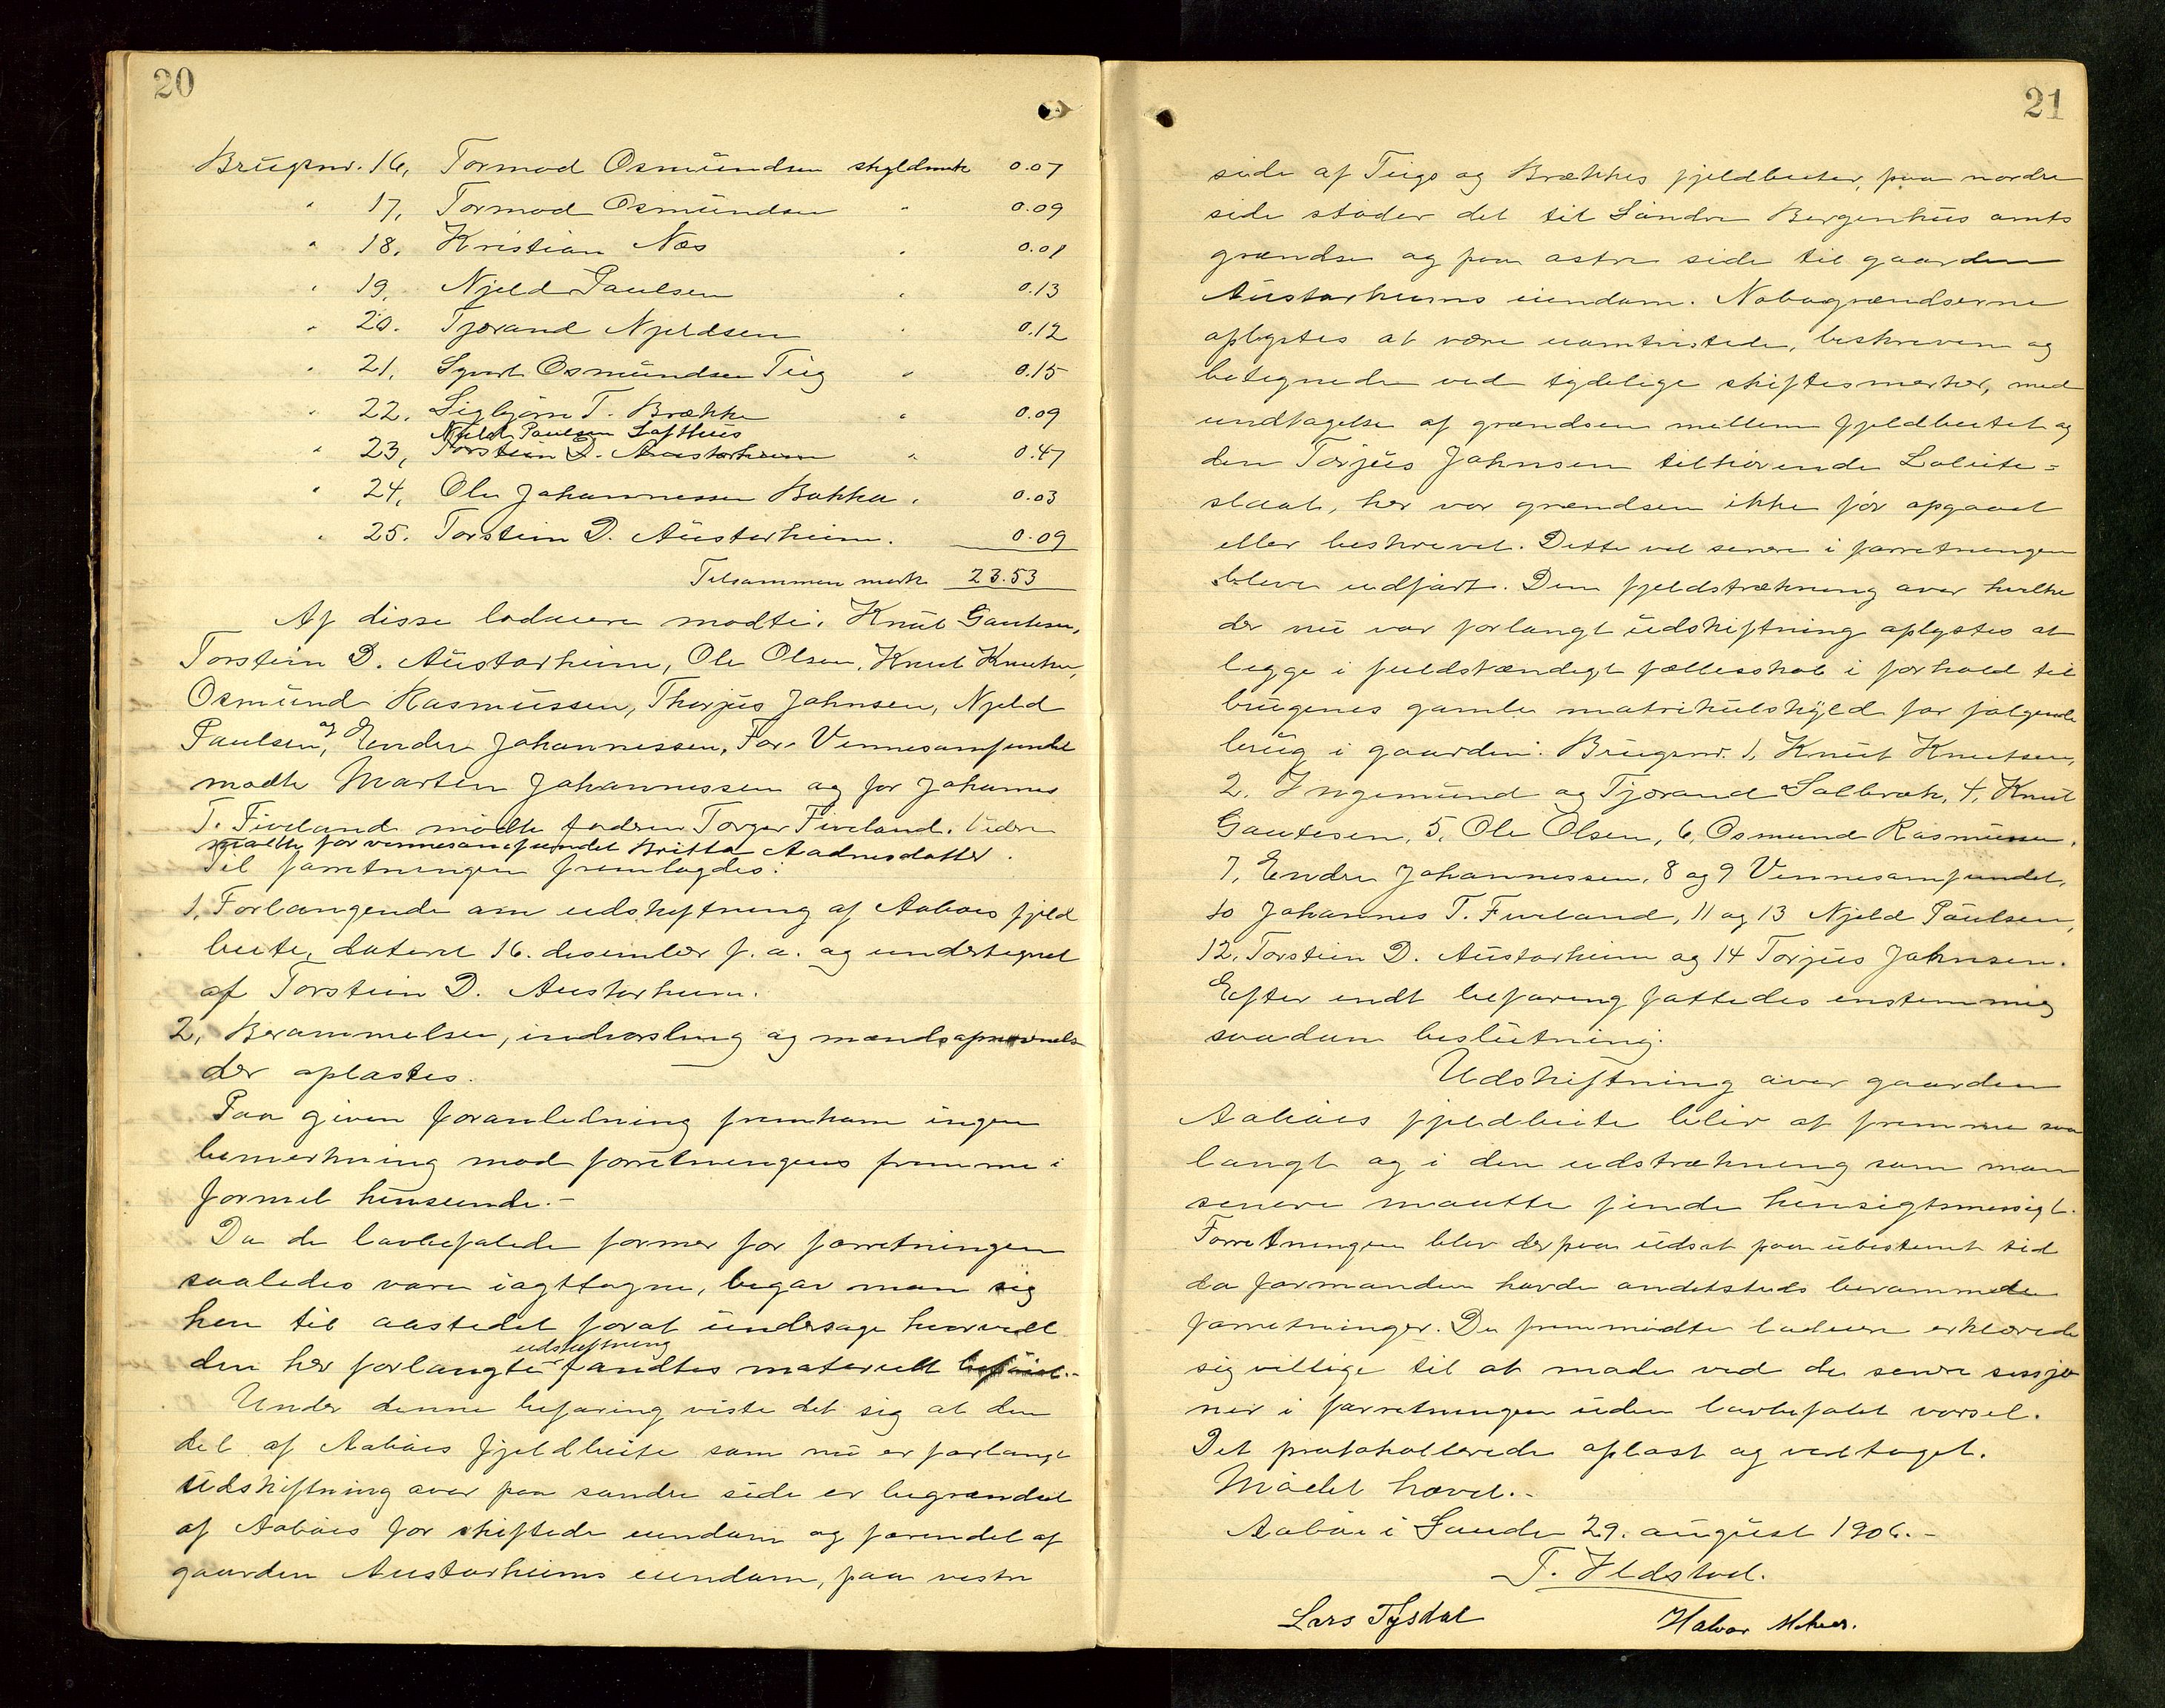 20
Brugsnr. 16, Tormod Osmundsen skyldmark 0.07
" 17, Tormod Osmundsen " 0.09
" 18, Kristian Næs " 0.01
" 19, Njeld Paulsen " 0.13
" 20. Tjerand Njeldsen " 0.12
" 21, Sjurt Osmundsen Teig " 0.15
" 22. Sigbjørn T. Brække " 0.09
Njeld Paulsen Lofthus
" 23, Torstein D. Austarheim " 0.47
" 24, Ole Johannessen Bakka " 0.03
" 25. Torstein D. Austarheim. 0.09
Tilsammen mark 23.53
Af disse lodeiere mødte: Knut Gautesen,
Torstein D. Austarheim, Ole Olsen, Knut Knutsen,
Osmund Rasmussen, Thorjus Johnsen, Njeld
Paulsen, og Endre Johannessen, For Vennesamfundet
mødte Marten Johannessen og for Johannes
T. Fiveland mødte faderen Torger Fiveland. Videre
mødte for vennesamfundet Britta Aadnesdatter.
Til forretningen fremlagdes:
1, Forlangende om udskiftning af Aabøes fjeld
beite, dateret 16. desember f. a. og undertegnet
af Torstein D. Austarheim.
2, Berammelsen, indvarsling og mandsopnævnelse
der oplæstes.
Paa given foranledning fremkom ingen
bemerkning mod forretningens fremme i
formel henseende.-
Da de lovbefalede former for forretningen
saaledes vare iagttagne, begav man sig
hen til aastedet forat undersøge hvorvidt
udskiftning
den her forlangte fandtes materielt beføiet.-
Under denne befaring viste det sig at den
del af Aabøes fjeldbeite som nu er forlangt
udskiftning over paa søndre side er begrændset
af Aabøes før skiftede eiendom og forendel af
gaarden Austarheims eiendom, paa vestre
21
side af Teigs og Brækkes fjeldbeiter, paa nordre
side støder det til Søndre Bergenhus amts
grændse og paa østre side til gaarden
Austarheims eiendom. Nabogrændserne
oplystes at være uomtvistede, beskreven og
betegnede ved tydelige skiftesmerker, med
undtagelse af grændsen mellem fjeldbeitet og
den Torjus Johnsen tilhørende Løleite-
slaat, her var grændsen ikke før opgaaet
eller beskrevet. Dette vil senere i forretningen
blive udført. Den fjeldstrækning over hvilke
der nu var forlangt udskiftning oplystes at
ligge i fuldstændigt fællesskab i forhold til
brugenes gamle matrikulskyld for følgende
brug i gaarden: Brugsnr. 1, Knut Knutsen,
2. Ingemund og Tjerand Solbræk, 4, Knut
Gautesen, 5, Ole Olsen, 6, Osmund Rasmussen,
7, Endre Johannessen, 8 og 9 Vennesamfundet,
10 Johannes T. Fiveland, 11 og 13 Njeld Paulsen,
12, Torstein D. Austarheim og 14 Torjus Johnsen.
Efter endt befaring fattedes enstemmig
saadan beslutning:
Udskiftning over gaarden
Aabøes fjeldbeite bliv at fremme saa
langt og i den udstrækning som man
senere maatte finde hensigtsmessigt.
Forretningen blev derpaa udsat paa ubestemt tid
da formanden havde andetsteds berammede
forretninger. De fremmødte lodeiere erklærede
sig villige til at møde ved de senere sessjo
ner i forretningen uden lovbefalet varsel.
Det protokollerede oplæst og vedtaget.
Mødet hævet.-
Aabøe i Saude 29. august 1906.-
T. Ildstad.
Lars Tysdal Halvor